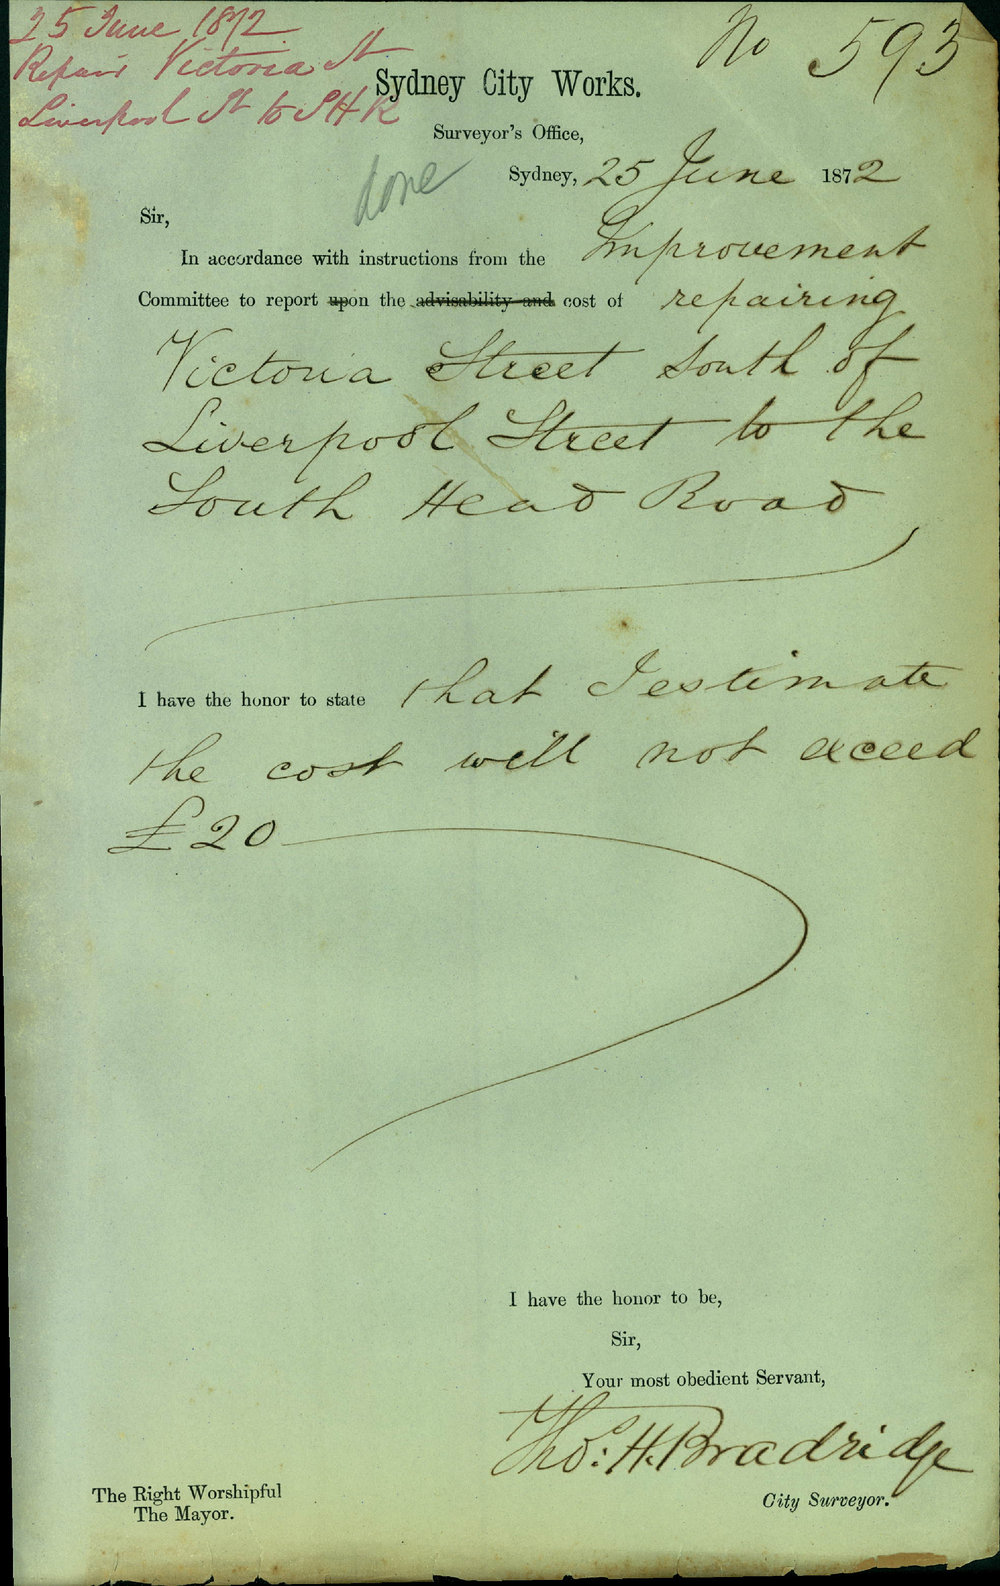 25 June 1872
Repair Victoria St
Liverpool St to SHR
No 593
Sydney City Works.
Surveyor's Office,
done
Sydney, 25 June 1872
Sir,
In accordance with instructions from the Improvement
Committee to report upon the advisability and cost of repairing
Victoria Street South of
Liverpool Street to the
South Head Road
I have the honor to state that I estimate
the cost will not exceed
£20
I have the honor to be,
Sir,
Your most obedient Servant,
Thos. H. Bradridge
City Surveyor.
The Right Worshipful
The Mayor.